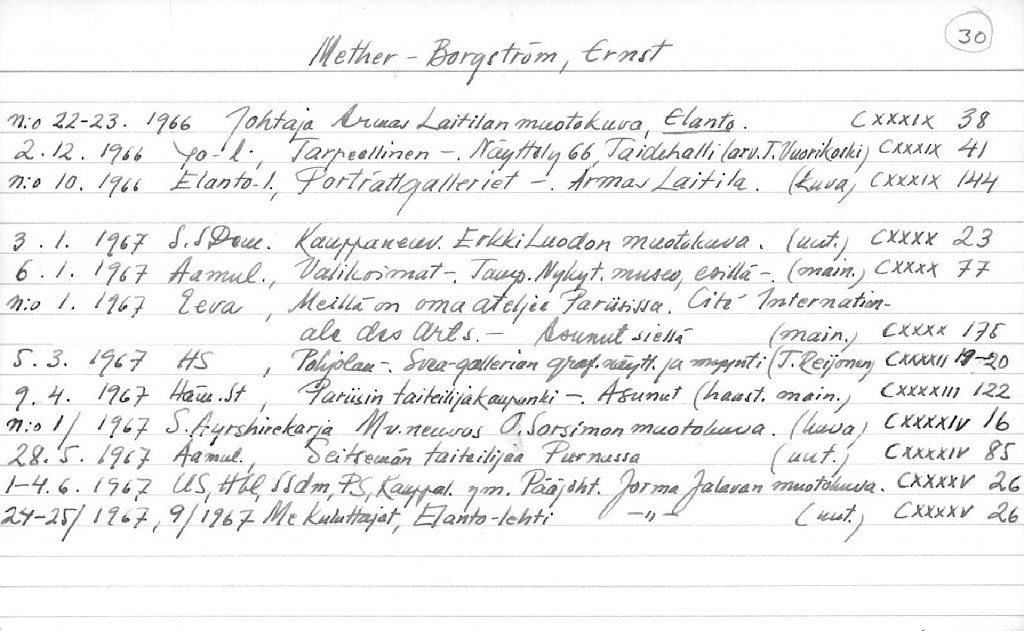 30
Mether-Borgström, Ernst
n:o 22-23. 1966 Johtaja Armas Laitilan muotokuva, Elanto. CXXXIX 38
2.12. 1966 yo-l., Tarpeellinen -. Näyttely 66, Taidehalli (arv. T. Vuorikoski) CXXXIX 41
n:o 10. 1966 Elanto-l., Porträttgalleriet -. Armas Laitila. (kuva) CXXXIX 144
3.1. 1967 S.SDem. Kauppaneuv. Erkki Luodon muotokuva. (uut.) CXXXX 23
6.1. 1967 Aamul., Valikoimat -. Tamp. Nykyt. museo, esillä -. (main.) CXXXX 77
n:o 1. 1967 Eeva, Meillä on oma ateljee Pariisissa. Cité Internation-
ale des Arts. - Asunut siellä (main.) CXXXX 175
5.3. 1967 HS, Pohjolan -. Svea-gallerian graf. näytt. ja myynti (T. Reijonen) CXXXXII 19-20
9.4. 1967 Häm.St, Pariisin taiteilijakaupunki -. Asunut (haast. main.) CXXXXIII 122
n:o 1/ 1967 S. Ayrshirekarja Mv.neuvos O. Sarsimon muotokuva. (kuva) CXXXXIV 16
28.5. 1967 Aamul., Seitsemän taiteilijaa Purnussa (uut.) CXXXXIV 85
1-4.6. 1967 US, Hbl, SSdm, PS, Kauppal. ym. Pääjoht. Jorma Jalavan muotokuva. CXXXXV 26
24-25/1967, 9/1967 Me Kuluttajat, Elanto-lehti -"- (uut.) CXXXXV 26